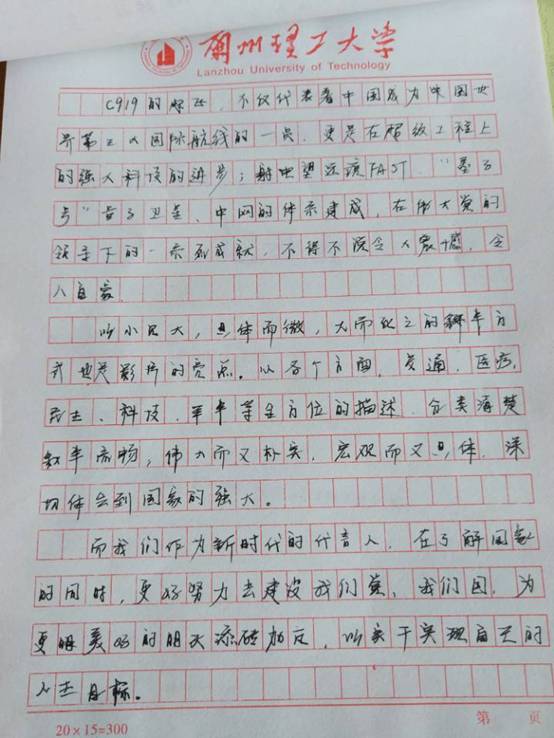 蘭州理工大学
Lanzhou University of Technology
C919的起飞，不仅代表着中国成为中国世
界第三大国际航线的一员，更是在超级工程上
的强大科技的进步；射电望远镜FAST，“墨子
号”量子卫星、中网的体系建成，在伟大党的
领导下的一系列成就，不得不说令人震撼，令
人自豪
以小见大，具体而微，大而化之的叙事方
式也是影片的亮点。从各个方面，交通、医疗，
民生、科技、军事等全方位的描述，分类清楚
叙事流畅，伟大而又朴实，宏观而又具体，深
切体会到国家的强大。
而我们作为新时代的代言人，在了解国家
的同时，更好努力去建设我们党，我们国，为
更加美好的明天添砖加瓦，以实干实现自己的
人生目标。
20×15=300
第 页